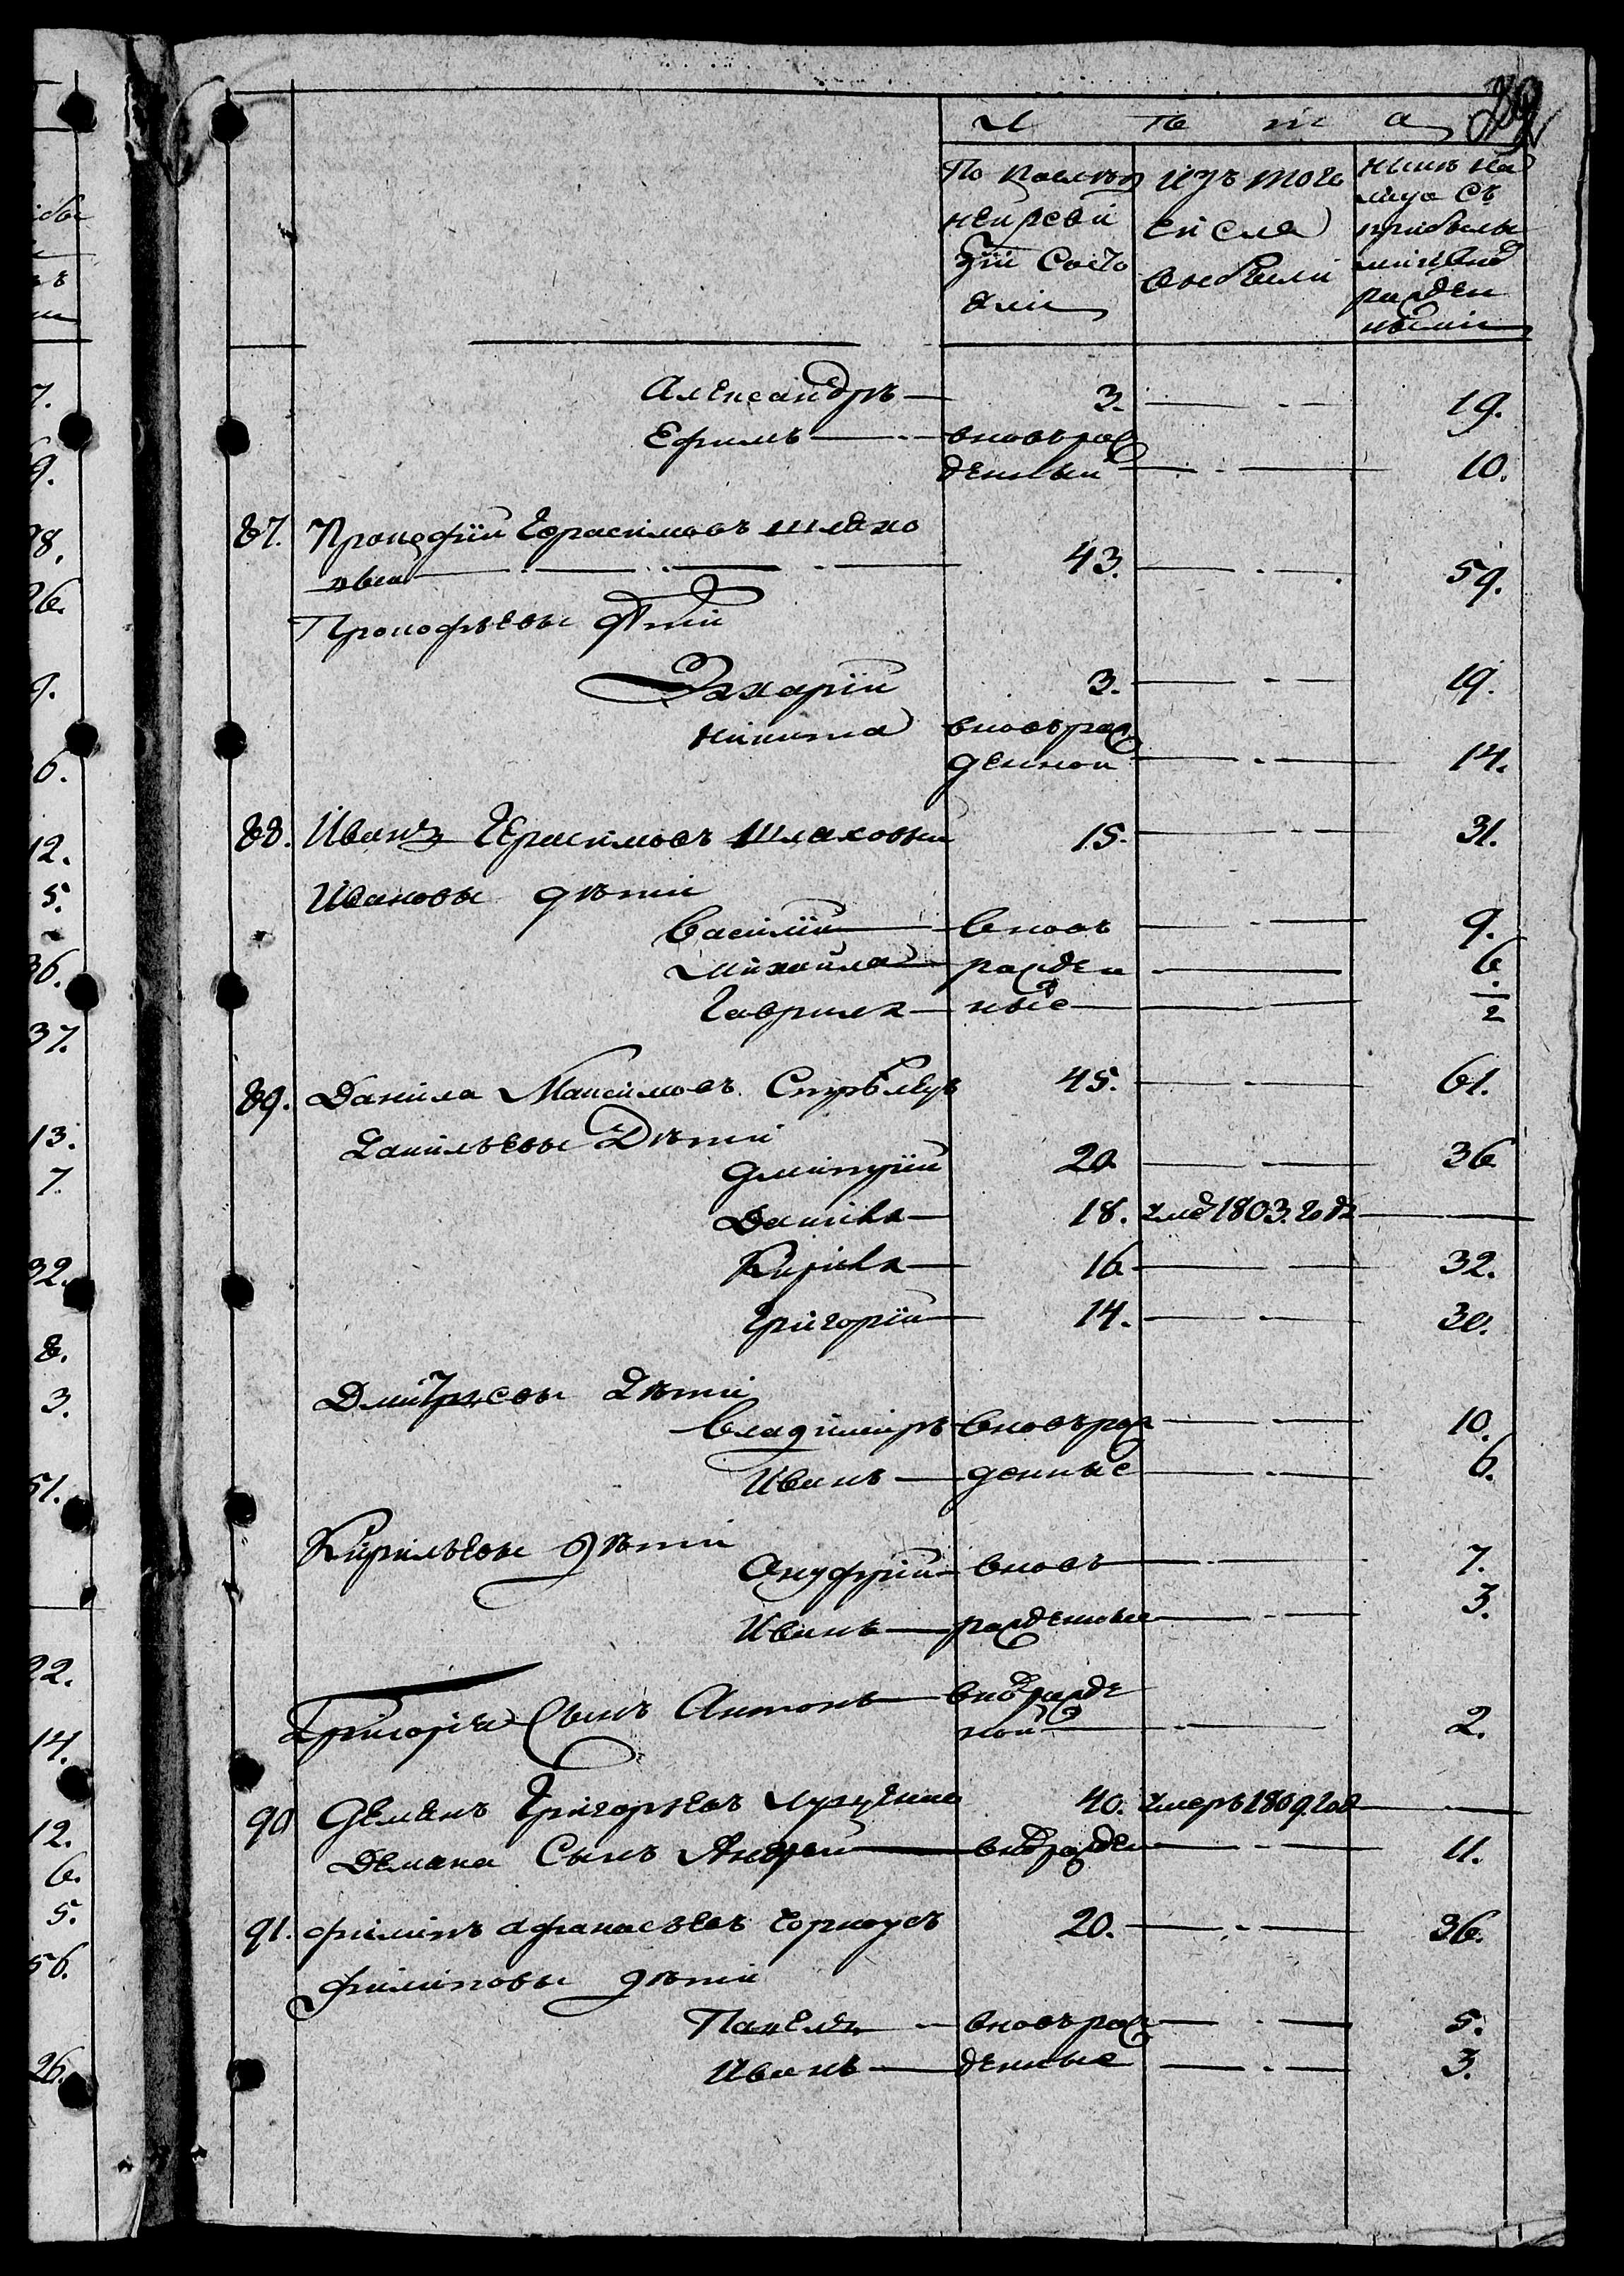 Л ѣ т а
По последъ изъ того нынѣ на
ней реви числа лицо съ
зіи состо выбыли прибылы
яли ми и внов
рожден
ными
Александръ — 3. — 19.
Ефимъ — вновь рож
денный — 10.
87. Прокофій Герасимовъ Шляхо
вый — 43. — 59.
Прокофьевы дѣти
Захарій 3. — 19.
Никита вновь рож
денной — 14.
88. Иванъ Герасимовъ Шляховый 15. — 31.
Ивановы дѣти
Василій — вновь — 9.
Михайла — рожден — 6.
Гаврила — ные — 1/2
89. Данила Максимовъ Стрѣлецъ 45. — 61.
Данильевы Дѣти
Дмитрій 20 — 36
Данила — 18. умер 1803. года —
Кирила — 16 — 32.
Григорій — 14. — 30.
Дмитріевы дѣти
Владимиръ вновь рож — 10.
Иванъ — денные — 6.
Кирильевы дѣти
Ануфрій — вновь — 7.
Иванъ — рожденные — 3.
Григорія Сынъ Антонъ — внов рожде
ной — 2.
90 Демянъ Григорьевъ 40. умеръ 1809. год —
Демяна Сынъ Андрей — внов рожден — 11.
91. Филипъ Афанасьевъ Чорноусъ 20. — 36.
Филиповы дѣти
Павелъ — вновь рож — 5.
Иванъ — денные — 3.